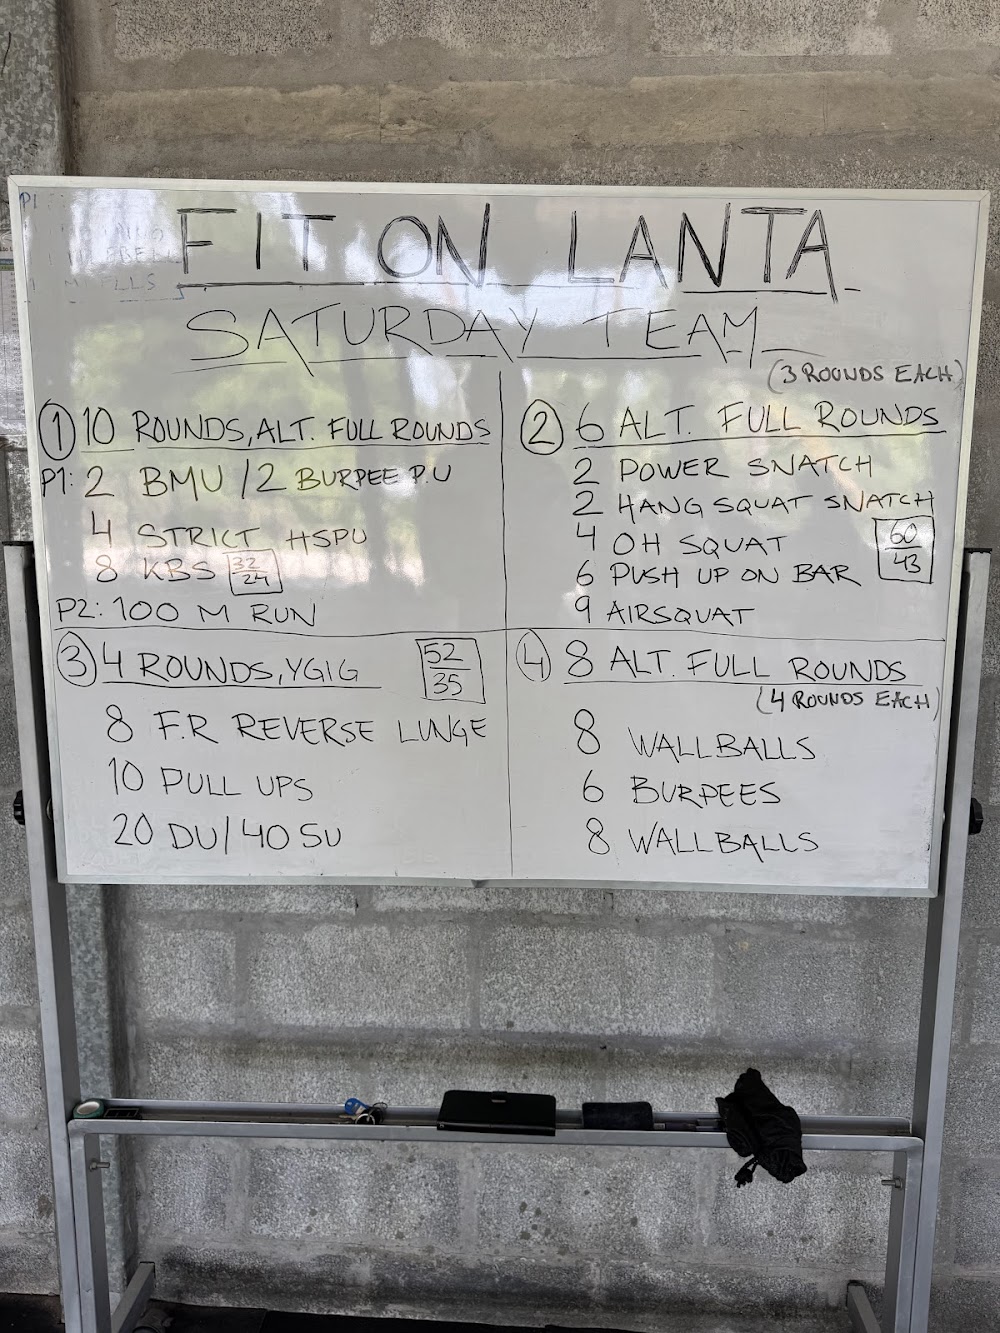 FIT ON LANTA
SATURDAY TEAM
① 10 ROUNDS, ALT. FULL ROUNDS
P1: 2 BMU / 2 BURPEE P.U
4 STRICT HSPU
8 KBS 32/24
P2: 100 M RUN
(3 ROUNDS EACH)
② 6 ALT. FULL ROUNDS
2 POWER SNATCH
2 HANG SQUAT SNATCH
4 OH SQUAT 60/43
6 PUSH UP ON BAR
9 AIRSQUAT
③ 4 ROUNDS, YGIG 52/35
8 F.R REVERSE LUNGE
10 PULL UPS
20 DU/40 SU
④ 8 ALT. FULL ROUNDS
(4 ROUNDS EACH)
8 WALLBALLS
6 BURPEES
8 WALLBALLS